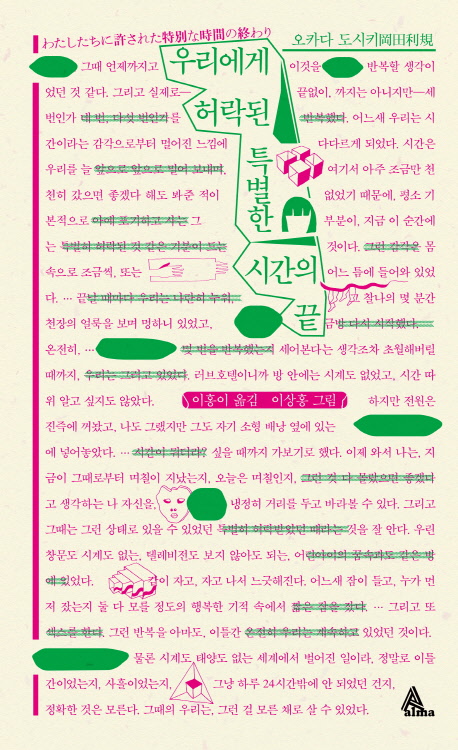 わたしたちに許された特別な時間の終わり
오카다 도시키 岡田利規
우리에게
허락된
특별한
시간의
끝
그때 언제까지고 이것을 반복할 생각이
었던 것 같다. 그리고 실제로— 끝없이, 까지는 아니지만—세
번인가 네 번, 다섯 번인가를 반복했다. 어느새 우리는 시
간이라는 감각으로부터 멀어진 느낌에 다다르게 되었다. 시간은
우리를 늘 앞으로 앞으로 밀어 보내며, 여기서 아주 조금만 천
천히 갔으면 좋겠다 해도 봐준 적이 없었기 때문에, 평소 기
본적으로 아예 포기하고 사는 그 부분이, 지금 이 순간에
는 특별히 허락된 것 같은 기분이 드는 것이다. 그런 감각은 몸
속으로 조금씩, 또는 어느 틈에 들어와 있었
다. … 끝날 때마다 우리는 나란히 누워, 그 찰나의 몇 분간
천장의 얼룩을 보며 멍하니 있었고, 금방 다시 시작했다.
온전히. … 몇 번을 반복했는지 세어본다는 생각조차 초월해버릴
때까지, 우리는 그러고 있었다. 러브호텔이니까 방 안에는 시계도 없었고, 시간 따
위 알고 싶지도 않았다. 하지만 전원은
이홍이 옮김 이상홍 그림
진즉에 꺼놨고, 나도 그랬지만 그도 자기 소형 배낭 옆에 있는
에 넣어놓았다. … 시간이 뭐더라? 싶을 때까지 가보기로 했다. 이제 와서 나는, 지
금이 그때로부터 며칠이 지났는지, 오늘은 며칠인지, 그런 것 다 몰랐으면 좋겠다
고 생각하는 나 자신을, 냉정히 거리를 두고 바라볼 수 있다. 그리고
그때는 그런 상태로 있을 수 있었던 특별히 허락받았던 때라는 것을 잘 안다. 우린
창문도 시계도 없는, 텔레비전도 보지 않아도 되는, 어린아이의 꿈속과도 같은 방
에 있었다. 같이 자고, 자고 나서 느긋해진다. 어느새 잠이 들고, 누가 먼
저 잤는지 둘 다 모를 정도의 행복한 기적 속에서 짧은 잠을 잤다. … 그리고 또
섹스를 한다. 그런 반복을 아마도, 이틀간 온전히 우리는 계속하고 있었던 것이다.
물론 시계도 태양도 없는 세계에서 벌어진 일이라. 정말로 이틀
간이었는지, 사흘이었는지, 그냥 하루 24시간밖에 안 되었던 건지,
정확한 것은 모른다. 그때의 우리는, 그런 걸 모른 채로 살 수 있었다.
alma